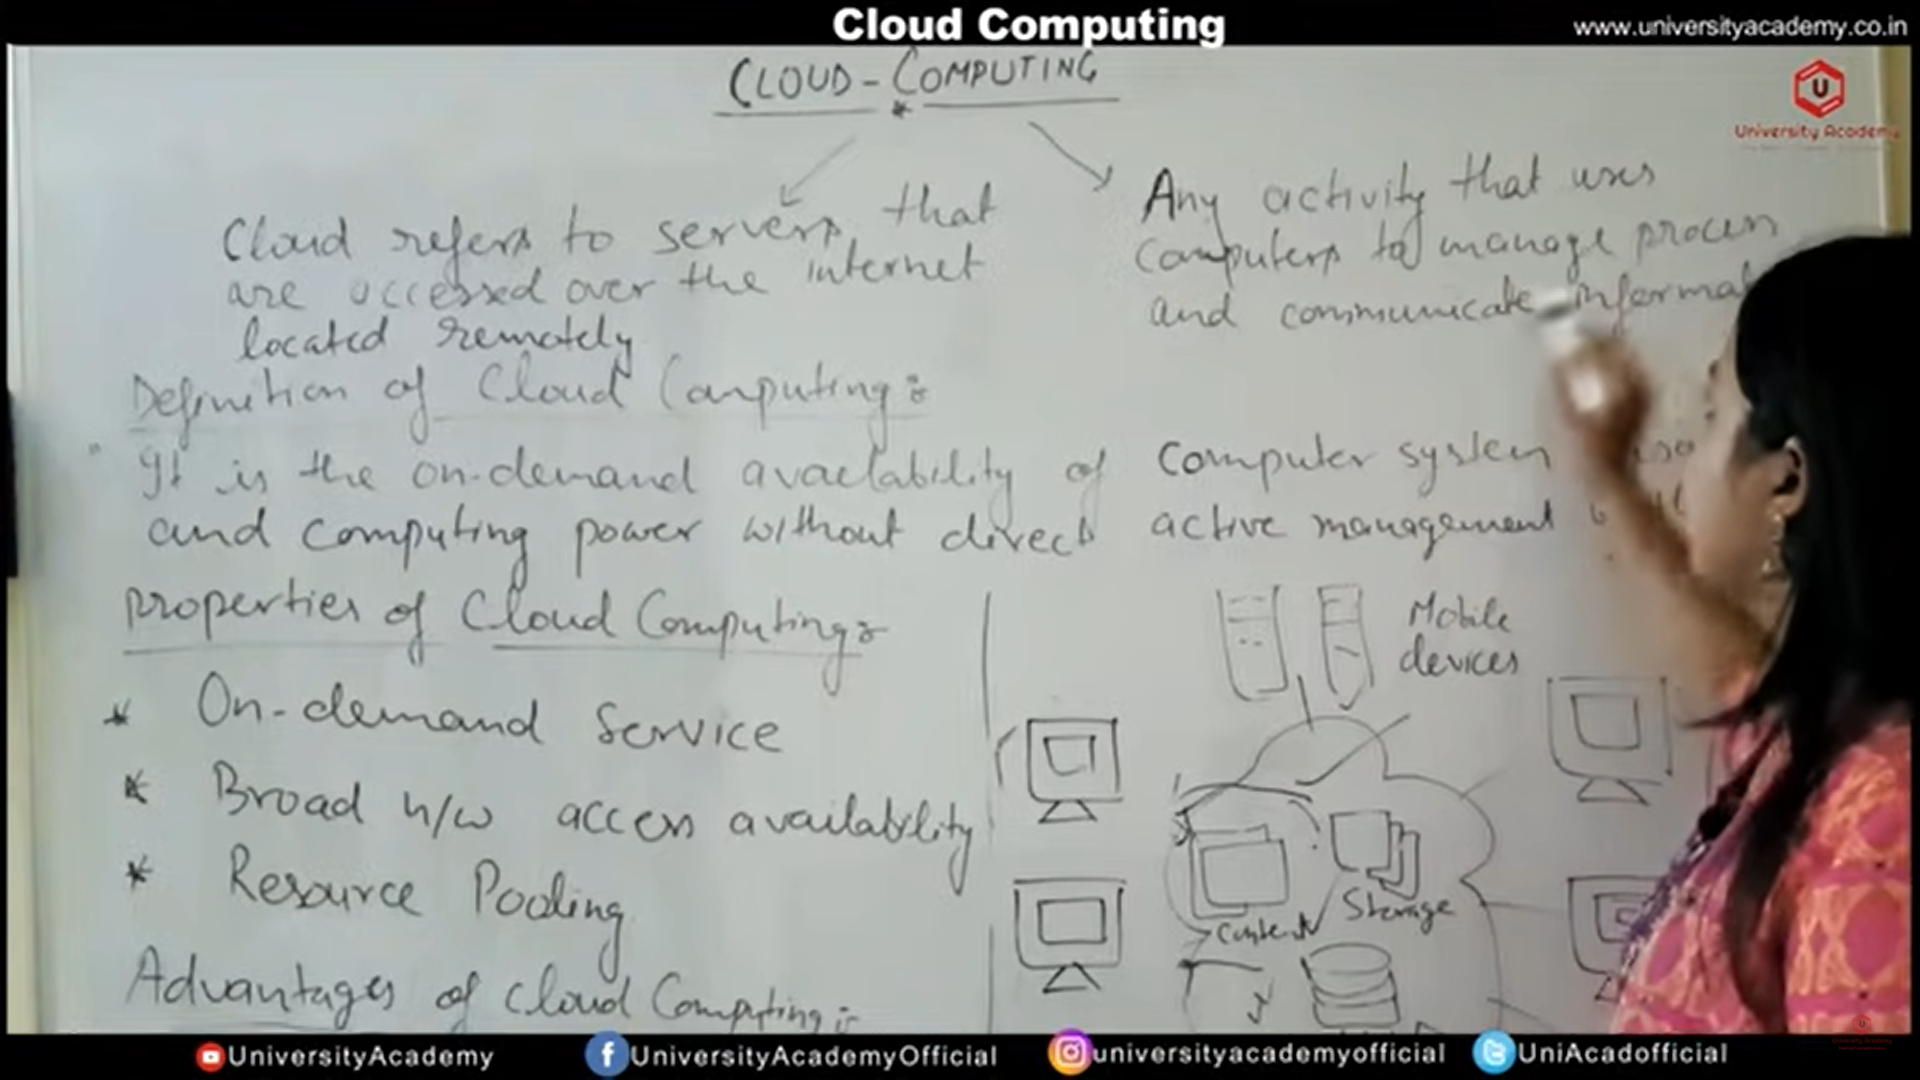 Cloud Computing
www.universityacademy.co.in
CLOUD-COMPUTING
U
University Academy
Cloud refers to servers that
are accessed over the internet
located remotely
Any activity that uses
Computers to manage process
and communicate
Definition of Cloud Computing:
It is the on-demand availability of Computer system
and computing power without direct active management
Properties of Cloud Computing:
* On-demand Service
* Broad n/w access availability
* Resource Pooling
Advantages of Cloud Computing:
Mobile
devices
Content
Storage
UniversityAcademy
UniversityAcademyOfficial
universityacademyofficial
UniAcadofficial